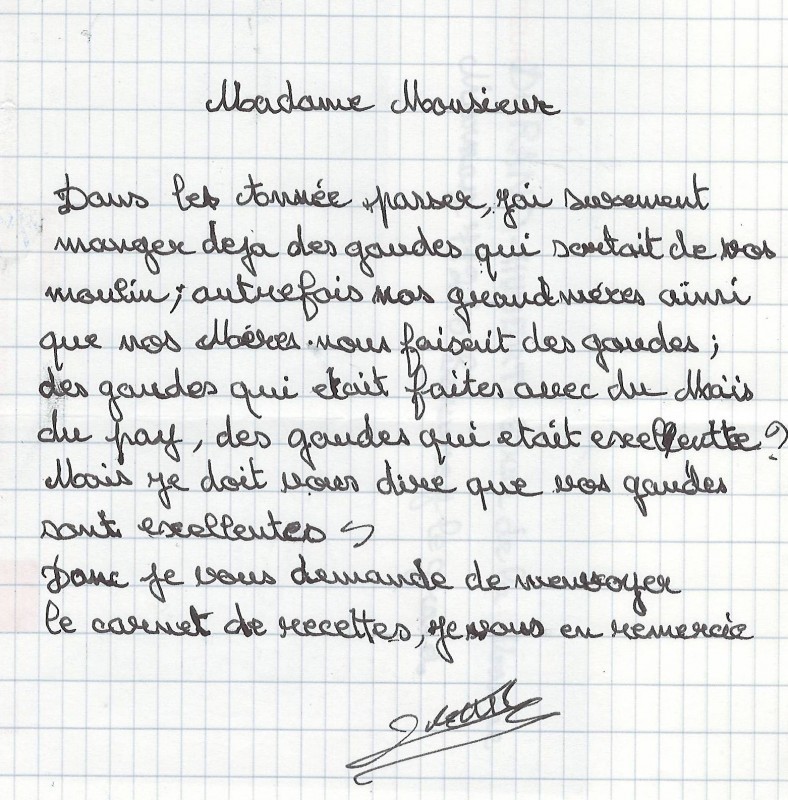 Madame Monsieur
Dans les Année passer, j'ai surement
manger deja des gaudes qui sortait de vos
moulin; autrefois nos grandméres ainsi
que nos Méres nous faisait des gaudes;
des gaudes qui etait faites avec du Maïs
du pay, des gaudes qui etait exellentte?
Mais je doit vous dire que vos gaudes
sont exellentes
Donc je vous demande de m'envoyer
le carnet de recettes, je vous en remercie